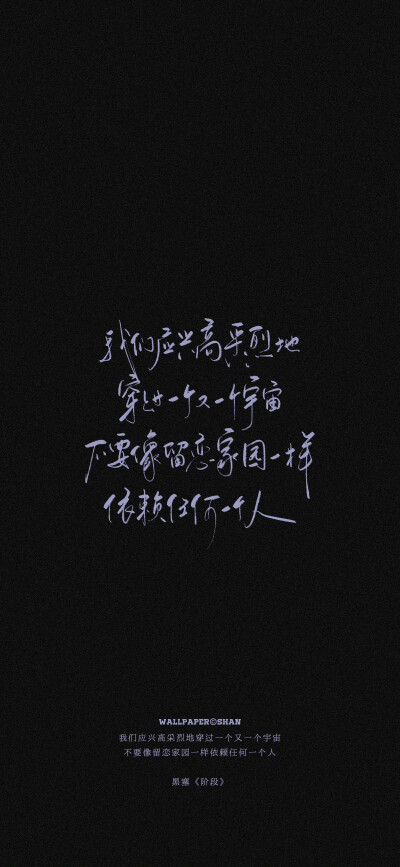 我们应兴高采烈地
穿过一个又一个宇宙
不要像留恋家园一样
依赖任何一个人
WALLPAPER©SHAN
我们应兴高采烈地穿过一个又一个宇宙
不要像留恋家园一样依赖任何一个人
黑塞《阶段》